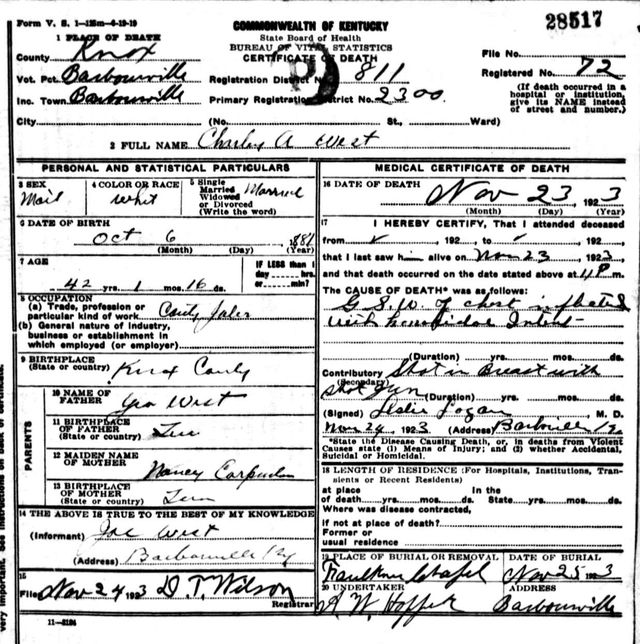 Form V. S. 1-125m-6-19-19
28517
COMMONWEALTH OF KENTUCKY
State Board of Health
BUREAU OF VITAL STATISTICS
CERTIFICATE OF DEATH
1 PLACE OF DEATH
County Knox
Vot. Pct. Barbourville
Inc. Town Barbourville
City (No. St., Ward)
Registration District No. 811
Primary Registration District No. 2300
File No.
Registered No. 72
(If death occurred in a
hospital or institution,
give its NAME instead
of street and number.)
2 FULL NAME Charley A West
PERSONAL AND STATISTICAL PARTICULARS
3 SEX
Mail
4 COLOR OR RACE
whit
5 Single
Married
Widowed
or Divorced
(Write the word)
Married
6 DATE OF BIRTH
Oct 6 1881
(Month) (Day) (Year)
7 AGE
42 yrs. 1 mos. 16 ds.
IF LESS than 1
day hrs.
or min?
8 OCCUPATION
(a) Trade, profession or
particular kind of work Conty Jaler
(b) General nature of industry,
business or establishment in
which employed (or employer)
9 BIRTHPLACE
(State or country) Knox Conty
PARENTS
10 NAME OF
FATHER Geo West
11 BIRTHPLACE
OF FATHER
(State or country) Tenn
12 MAIDEN NAME
OF MOTHER Nancy
13 BIRTHPLACE
OF MOTHER
(State or country) Tenn
14 THE ABOVE IS TRUE TO THE BEST OF MY KNOWLEDGE
(Informant) Joe West
(Address) Barbourville Ky
15
Filed Nov 24 1923 D. T. Wilson
Registrar
11-3184
MEDICAL CERTIFICATE OF DEATH
16 DATE OF DEATH
Nov 23, 1923
(Month) (Day) (Year)
17 I HEREBY CERTIFY, That I attended deceased
from , 192 , to , 192 ,
that I last saw him alive on Nov 23 1923,
and that death occurred on the date stated above at 4 P m.
The CAUSE OF DEATH* was as follows:
G. S. W. of chest inflicted
with homicidal Intent
(Duration) yrs. mos. ds.
Contributory Shot in Breast with
(Secondary)
shot gun (Duration) yrs. mos. ds.
(Signed) Leslie Logan, M. D.
Nov 24, 1923 (Address) Barboville Ky
*State the Disease Causing Death, or, in deaths from Violent
Causes state (1) Means of Injury; and (2) whether Accidental,
Suicidal or Homicidal.
18 LENGTH OF RESIDENCE (For Hospitals, Institutions, Tran-
sients or Recent Residents)
at place In the
of death yrs. mos. ds. State yrs. mos. ds.
Where was disease contracted,
if not at place of death?
Former or
usual residence
19 PLACE OF BURIAL OR REMOVAL
Faulkner Chapel
DATE OF BURIAL
Nov 25 1923
20 UNDERTAKER
A W Hopper
ADDRESS
Barbourville